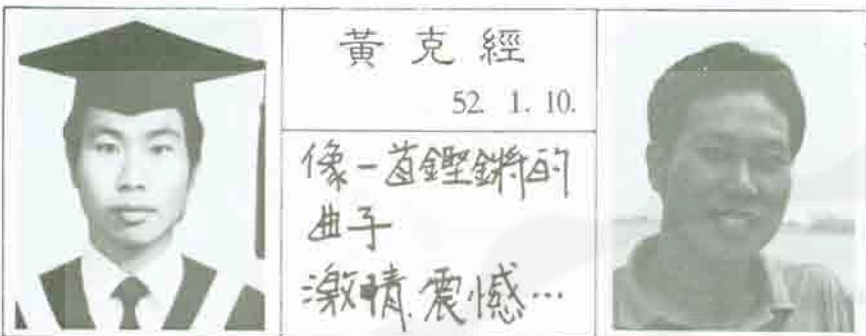 黃克經
52. 1. 10.
像一首鏗鏘的
曲子
激情.震憾…